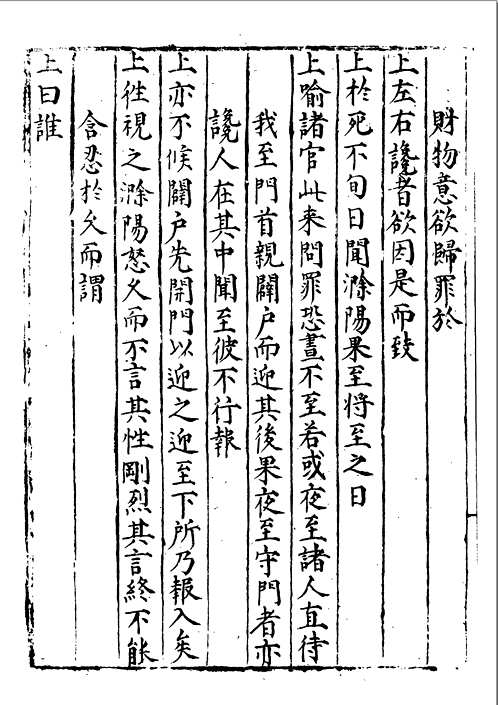 財物意欲歸罪於
上左右讒者欲因是而致
上於死不旬日聞滁陽果至将至之日
上喻諸官此来問罪恐晝不至若或夜至諸人直待
我至門首親闢户而迎其後果夜至守門者亦
讒人在其中聞至彼不行報
上亦不候闢户先開門以迎之迎至下所乃報入矣
上徃視之滁陽怒久而不言其性剛烈其言終不能
含忍於久而謂
上曰誰